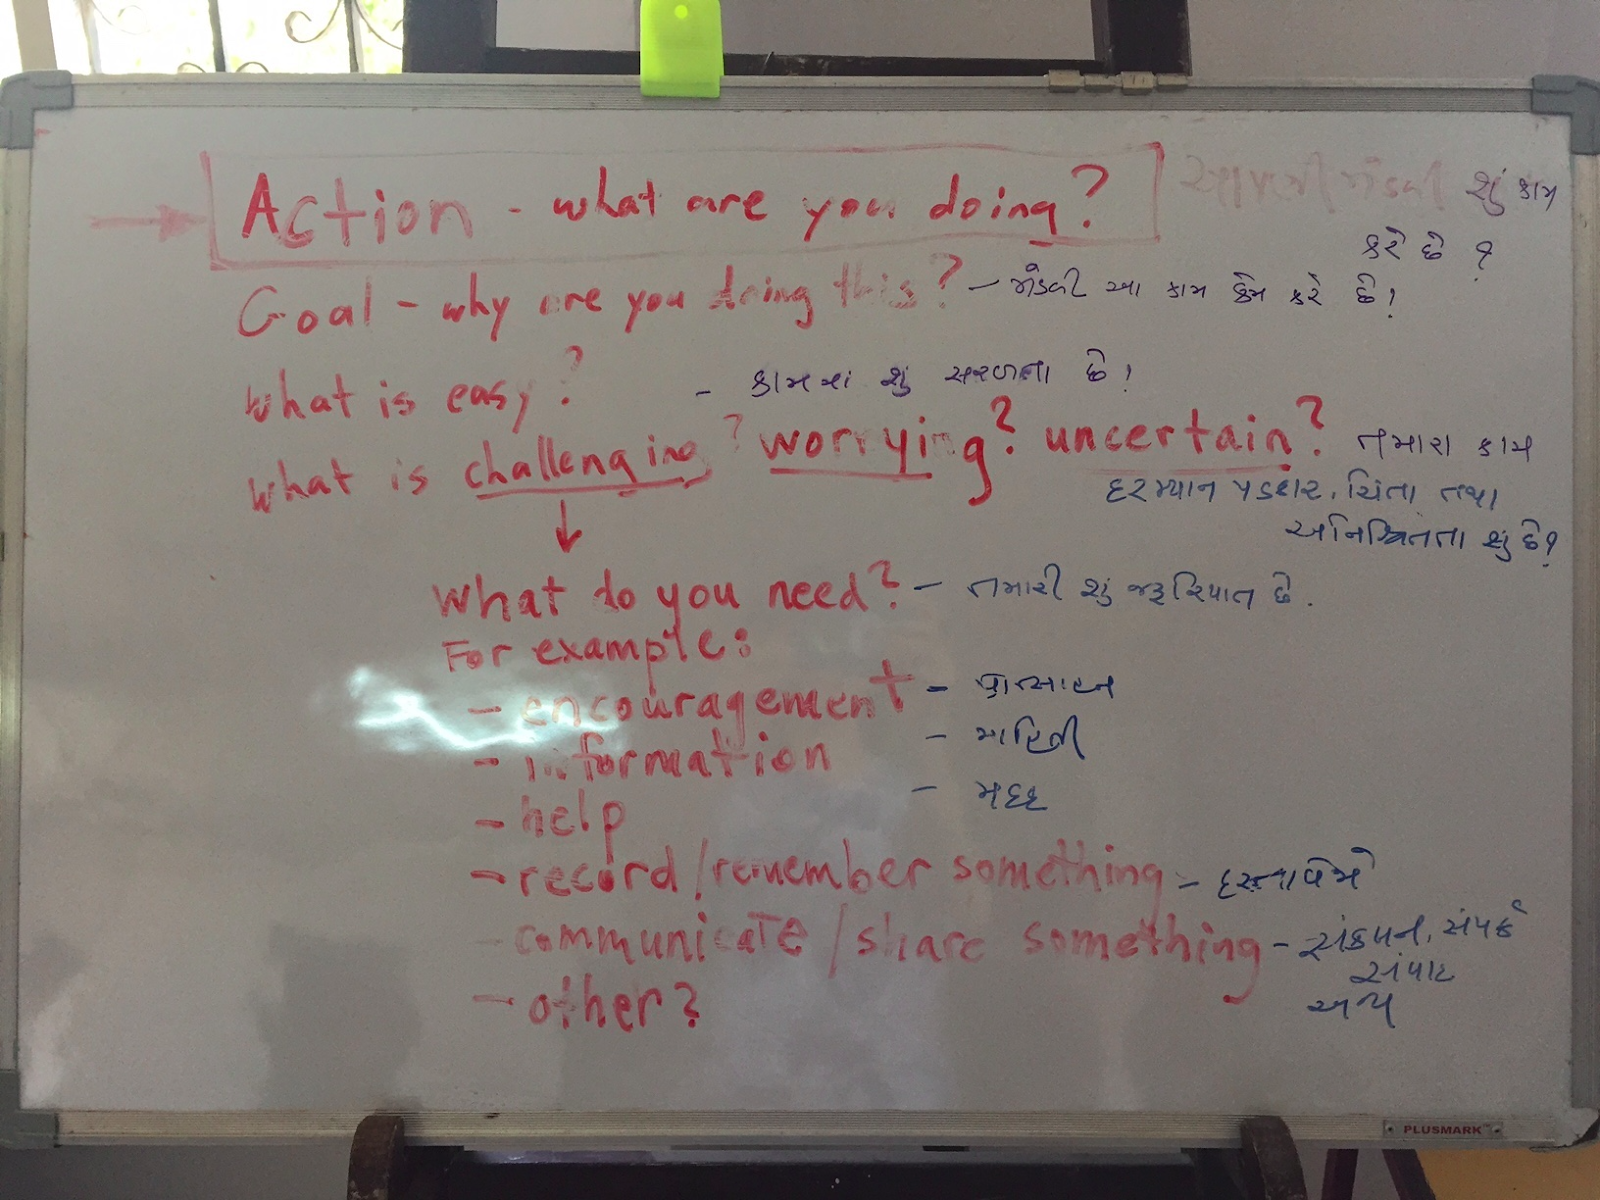 Action - what are you doing? આપણી મંડળી શું કામ
કરે છે ?
Goal - why are you doing this? - મંડળી આ કામ કેમ કરે છે!
What is easy? - કામમાં શું સરળતા છે!
What is challenging? worrying? uncertain? તમારા કામ
દરમ્યાન પડકાર, ચિંતા તથા
અનિશ્ચિતતા શું છે?
↓
What do you need? - તમારી શું જરૂરિયાત છે.
For example:
- encouragement - પ્રોત્સાહન
- information - માહિતી
- help - મદદ
- record/remember something - દસ્તાવેજો
- communicate/share something - સંકલન, સંપર્ક
સંવાદ
- other? અન્ય
PLUSMARK